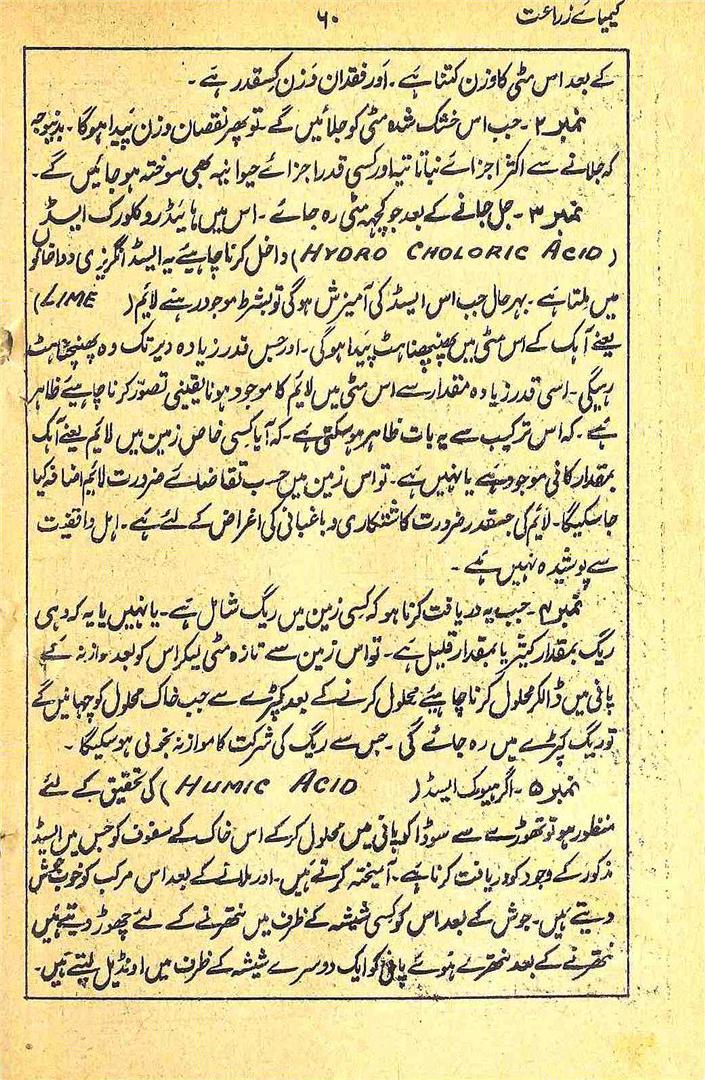 کیمیائے زراعت
۶۰
کے بعد اس مٹی کا وزن کتنا ہے۔ اور فقدان وزن کسقدر ہے۔
نمبر ۲۔ جب اس خشک شدہ مٹی کو جلائیں گے۔ تو پھر نقصان وزن پیدا ہوگا۔ بدینوجہ
کہ جلانے سے اکثر اجزائے نباتاتیہ اور کسی قدر اجزائے حیوانیہ بھی سوختہ ہو جائیں گے۔
نمبر ۳۔ جل جانے کے بعد جو کچہہ مٹی رہ جائے۔ اس میں ہائیڈروکلورک ایسڈ
(HYDRO CHOLORIC ACID) داخل کرنا چاہیے یہ ایسڈ انگریزی دواخانوں
میں ملتا ہے۔ بہرحال جب اس ایسڈ کی آمیزش ہوگی تو بشرط موجود رہنے لایم (LIME)
یعنے آہک کے اس مٹی میں پھنپھناہٹ پیدا ہوگی۔ اور جس قدر زیادہ دیر تک وہ پھنپھناہٹ
رہیگی۔ اسی قدر زیادہ مقدار سے اس مٹی میں لائم کا موجود ہونا یقینی تصوّر کرنا چاہیے ظاہر
ہے۔ کہ اس ترکیب سے یہ بات ظاہر ہوسکتی ہے۔ کہ آیا کسی خاص زمین میں لائم یعنے آہک
بمقدار کافی موجود ہے یا نہیں ہے۔ تو اس زمین میں حسب تقاضائے ضرورت لائم اضافہ کیا
جا سکیگا۔ لائم کی جسقدر ضرورت کاشتکاری و باغبانی کی اغراض کے لئے ہے۔ اہل واقفیت
سے پوشیدہ نہیں ہے۔
نمبر ۴۔ جب یہ دریافت کرنا ہو کہ کسی زمین میں ریگ شامل ہے۔ یا نہیں یا یہ کہ وہی
ریگ بمقدار کثیر یا بمقدار قلیل ہے۔ تو اس زمین سے تازہ مٹی لیکر اس کو بعد موازنہ کے
پانی میں ڈالکر محلول کرنا چاہیے محلول کرنے کے بعد کپڑے سے جب خاک محلول کو چہانیں گے
تو ریگ کپڑے میں رہ جائے گی۔ جس سے ریگ کی شرکت کا موازنہ بخوبی ہوسکیگا۔
نمبر ۵۔ اگر ہیومک ایسڈ (HUMIC ACID) کی تحقیق کے لئے
منظور ہو تو تھوڑے سے سوڈا کو پانی میں محلول کر کے اس خاک کے سفوف کو جس میں ایسڈ
مذکور کے وجود کو دریافت کرنا ہے۔ آمیختہ کرتے ہیں۔ اور ملانے کے بعد اس مرکب کو خوب جوش
دیتے ہیں۔ جوش کے بعد اس کو کسی شیشہ کے ظرف میں نتھرنے کے لئے چھوڑ دیتے ہیں
نتھرنے کے بعد نتھرے ہوئے پانی کو ایک دوسرے شیشہ کے ظرف میں اونڈیل لیتے ہیں۔